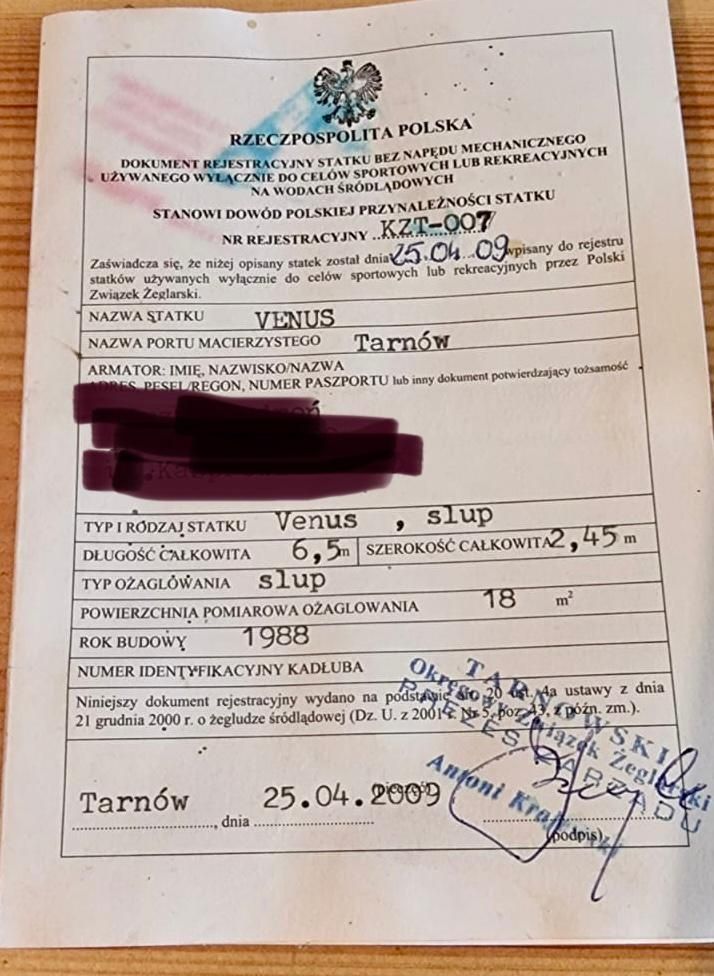 RZECZPOSPOLITA POLSKA
DOKUMENT REJESTRACYJNY STATKU BEZ NAPĘDU MECHANICZNEGO
UŻYWANEGO WYŁĄCZNIE DO CELÓW SPORTOWYCH LUB REKREACYJNYCH
NA WODACH ŚRÓDLĄDOWYCH
STANOWI DOWÓD POLSKIEJ PRZYNALEŻNOŚCI STATKU
NR REJESTRACYJNY ..KZT-007
Zaświadcza się, że niżej opisany statek został dnia 25.04.09 wpisany do rejestru
statków używanych wyłącznie do celów sportowych lub rekreacyjnych przez Polski
Związek Żeglarski.
NAZWA STATKU VENUS
NAZWA PORTU MACIERZYSTEGO Tarnów
ARMATOR: IMIĘ, NAZWISKO/NAZWA
ADRES, PESEL/REGON, NUMER PASZPORTU lub inny dokument potwierdzający tożsamość
TYP I RODZAJ STATKU Venus , slup
DŁUGOŚĆ CAŁKOWITA 6,5m SZEROKOŚĆ CAŁKOWITA 2,45 m
TYP OŻAGLOWANIA slup
POWIERZCHNIA POMIAROWA OŻAGLOWANIA 18 m²
ROK BUDOWY 1988
NUMER IDENTYFIKACYJNY KADŁUBA
Niniejszy dokument rejestracyjny wydano na podstawie art. 20 ust. 4a ustawy z dnia
21 grudnia 2000 r. o żegludze śródlądowej (Dz. U. z 2001 r. Nr 5, poz. 43, z późn. zm.).
TARNOWSKI
Okręgowy Związek Żeglarski
PREZES ZARZĄDU
Antoni
Tarnów , dnia 25.04.2009
(podpis)